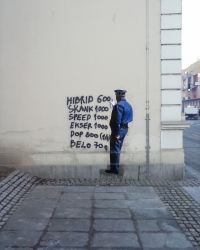 HIBRID 600
ŠKANK 1000
SPEED 1000
EKSER 1000
DOP 800
BELO 70